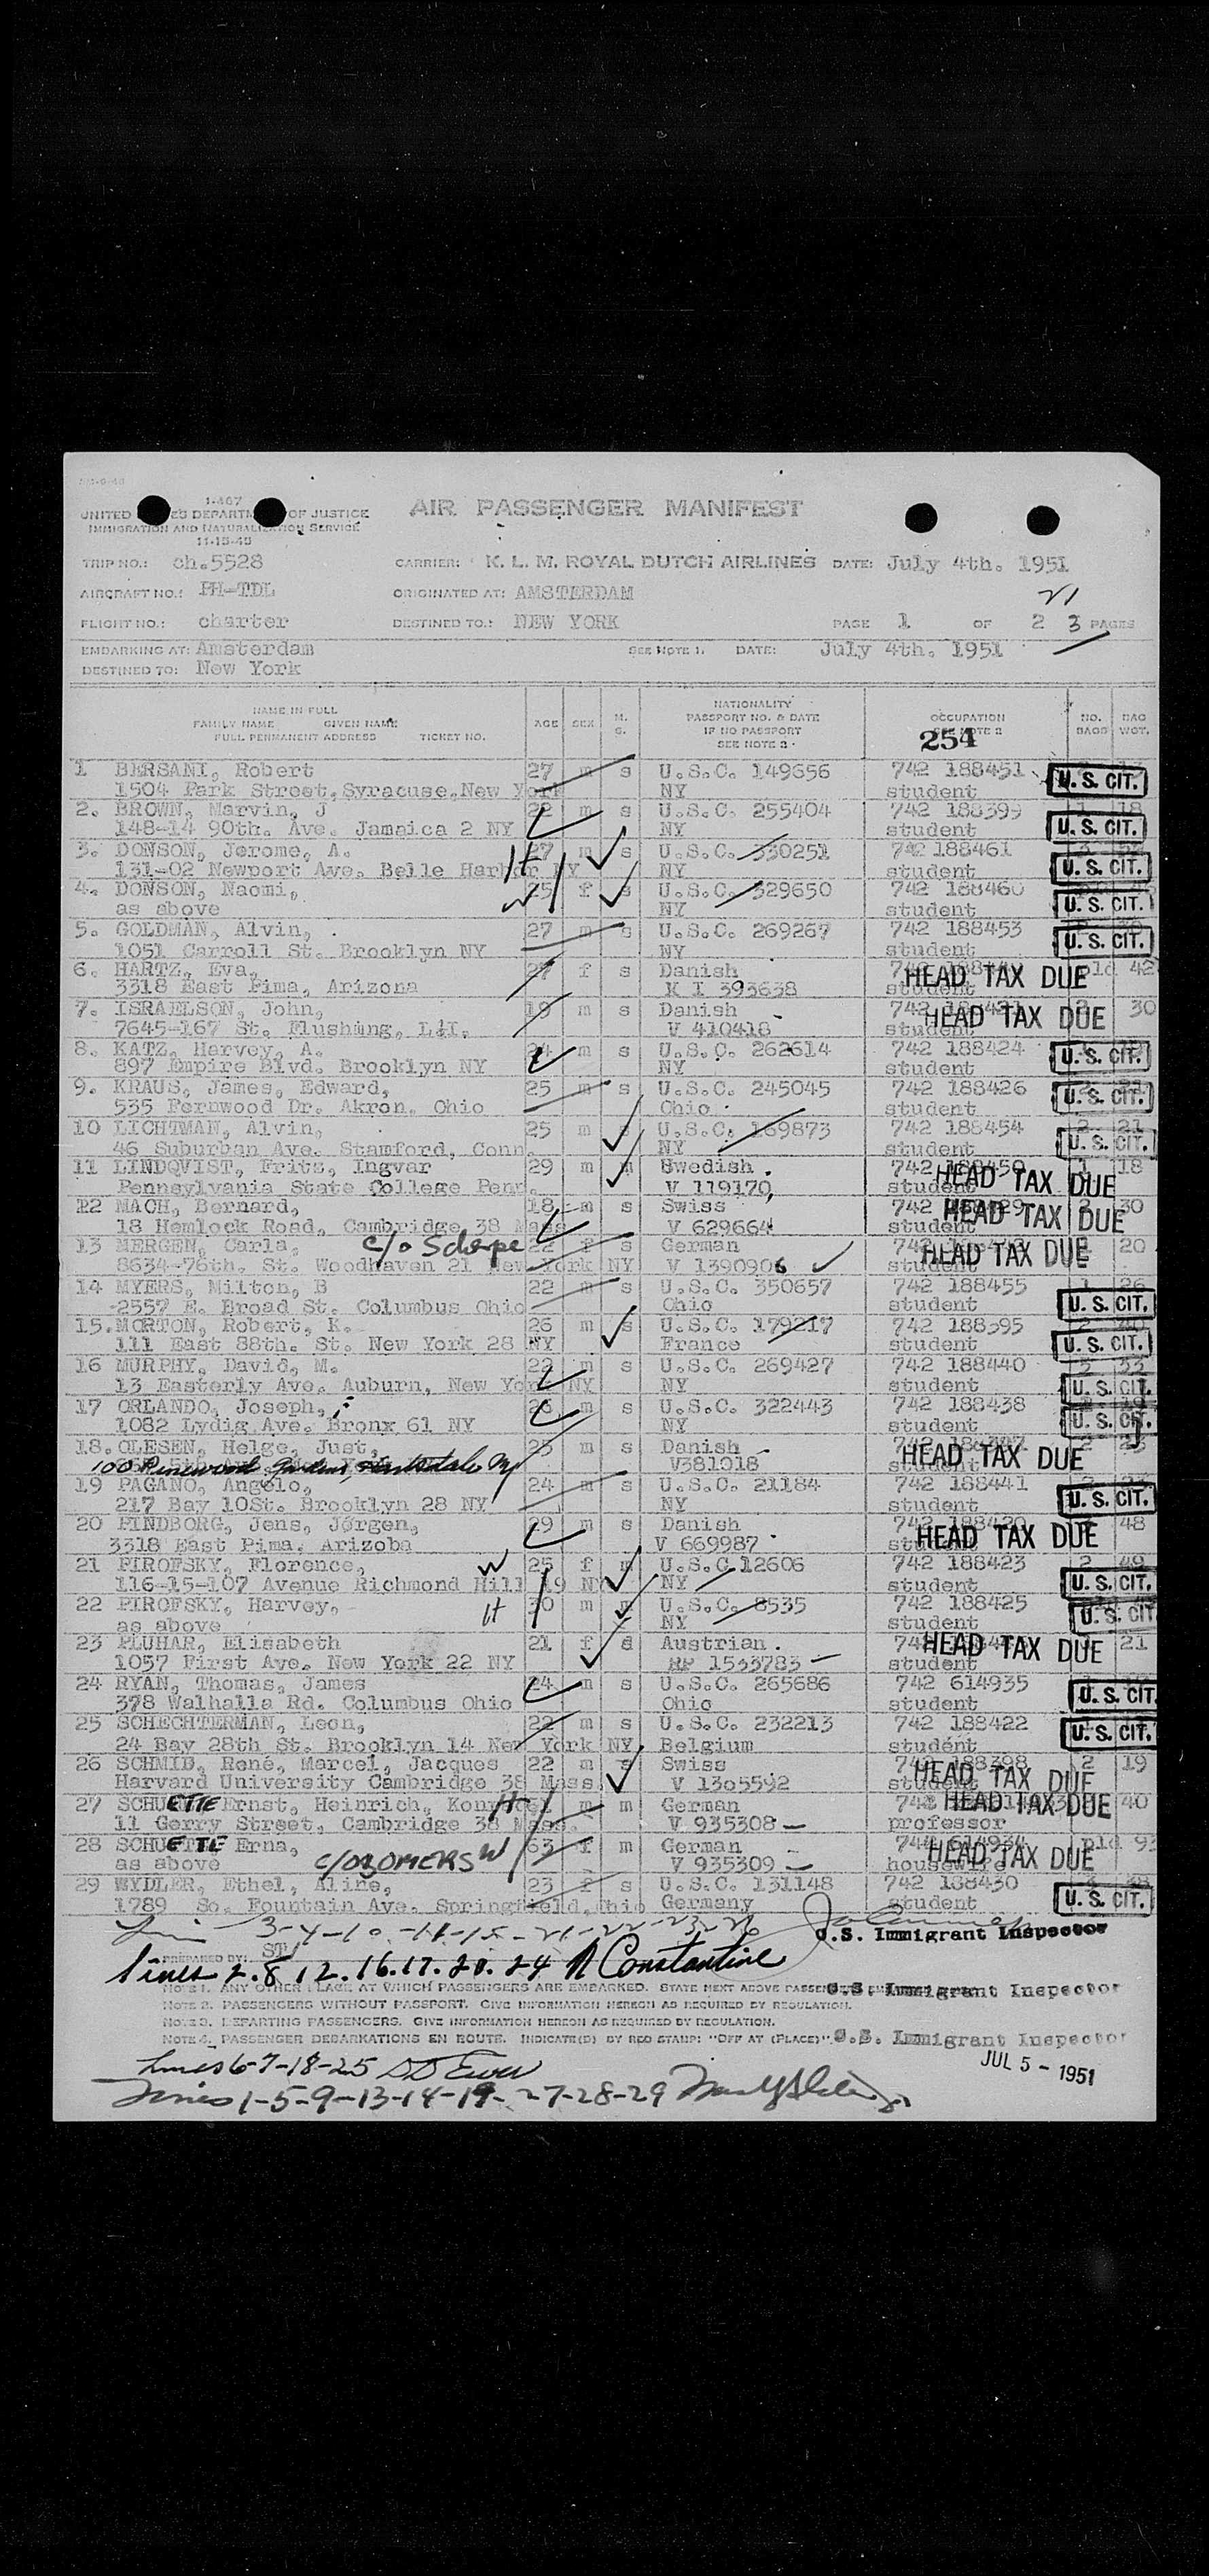 I-467
UNITED STATES DEPARTMENT OF JUSTICE
IMMIGRATION AND NATURALIZATION SERVICE
11-15-45
AIR PASSENGER MANIFEST
TRIP NO.: ch.5528 CARRIER: K. L. M. ROYAL DUTCH AIRLINES DATE: July 4th. 1951
AIRCRAFT NO.: PH-TDL ORIGINATED AT: AMSTERDAM 21
FLIGHT NO.: charter DESTINED TO.: NEW YORK PAGE 1 OF 2 3 PAGES
EMBARKING AT: Amsterdam SEE NOTE 1. DATE: July 4th. 1951
DESTINED TO: New York
NAME IN FULL FAMILY NAME GIVEN NAME FULL PERMANENT ADDRESS TICKET NO. AGE SEX M. S. NATIONALITY PASSPORT NO. & DATE IF NO PASSPORT SEE NOTE 2 OCCUPATION SEE NOTE 2 NO. BAGS BAG WGT.
254
1 BERSANI, Robert 27 m s U.S.C. 149656 742 188451 U. S. CIT.
1504 Park Street, Syracuse, New York NY student
2. BROWN, Marvin, J 22 m s U.S.C. 255404 742 188399 18
148-14 90th. Ave. Jamaica 2 NY NY student U. S. CIT.
3. DONSON, Jerome, A. H 27 m s U.S.C. 330251 742 188461
131-02 Newport Ave. Belle Harbor NY NY student U. S. CIT.
4. DONSON, Naomi, W 25 f s U.S.C. 329650 742 188460
as above NY student U. S. CIT.
5. GOLDMAN, Alvin, 27 m s U.S.C. 269267 742 188453
1051 Carroll St. Brooklyn NY NY student U. S. CIT.
6. HARTZ, Eva, 27 f s Danish HEAD TAX DUE pld 42
3318 East Pima, Arizona K I 393638 student
7. ISRAELSON, John, 19 m s Danish HEAD TAX DUE 30
7645-167 St. Flushing, L.I. V 410418 student
8. KATZ, Harvey, A. 24 m s U.S.C. 262614 742 188424
897 Empire Blvd. Brooklyn NY NY student U. S. CIT.
9. KRAUS, James, Edward, 25 m s U.S.C. 245045 742 188426
535 Fernwood Dr. Akron. Ohio Ohio student U. S. CIT.
10 LICHTMAN, Alvin, 25 m s U.S.C. 169873 742 188454 2 21
46 Suburban Ave. Stamford, Conn. NY student U. S. CIT.
11 LINDQVIST, Fritz, Ingvar 29 m m Swedish 742 188450 18
Pennsylvania State College Penn. V 119170 student HEAD TAX DUE
12 MACH, Bernard, 18 m s Swiss 742 HEAD TAX DUE 30
18 Hemlock Road, Cambridge 38 Mass V 629664 student
13 MERGEN, Carla, c/o Scherpe 22 f s German HEAD TAX DUE 20
8634-76th. St. Woodhaven 21 New York NY V 1390906 student
14 MYERS, Milton, B 22 m s U.S.C. 350657 742 188455 1 26
2557 E. Broad St. Columbus Ohio Ohio student U. S. CIT.
15. MORTON, Robert, K. 26 m s U.S.C. 179217 742 188395
111 East 88th. St. New York 28 NY France student U. S. CIT.
16 MURPHY, David, M. 22 m s U.S.C. 269427 742 188440
13 Easterly Ave. Auburn, New York NY NY student U. S. CIT.
17 ORLANDO, Joseph, 26 m s U.S.C. 322443 742 188438
1082 Lydig Ave. Bronx 61 NY NY student U. S. CIT.
18. OLESEN, Helge, Just, 25 m s Danish HEAD TAX DUE
100 Pinewood Gardens, Hartsdale Ny V381018 student
19 PAGANO, Angelo, 24 m s U.S.C. 21184 742 188441
217 Bay 10St. Brooklyn 28 NY NY student U. S. CIT.
20 PINDBORG, Jens, Jørgen, 29 m s Danish 742 188420 48
3318 East Pima, Arizoba V 669987 student HEAD TAX DUE
21 PIROFSKY, Florence, W 25 f m U.S.C 12606 742 188423 2 49
116-15-107 Avenue Richmond Hill 19 NY NY student U. S. CIT.
22 PIROFSKY, Harvey, H 30 m m U.S.C. 8535 742 188425
as above NY student U. S. CIT
23 PLUHAR, Elisabeth 21 f s Austrian HEAD TAX DUE 21
1057 First Ave. New York 22 NY RP 1533783 student
24 RYAN, Thomas, James 24 m s U.S.C. 265686 742 614935
378 Walhalla Rd. Columbus Ohio Ohio student U. S. CIT
25 SCHECHTERMAN, Leon, 22 m s U.S.C. 232213 742 188422
24 Bay 28th St. Brooklyn 14 New York NY Belgium student U. S. CIT.
26 SCHMID, René, Marcel, Jacques 22 m s Swiss 742 188398 2 19
Harvard University Cambridge 38 Mass. V 1305592 student HEAD TAX DUE
27 SCHUETTE Ernst, Heinrich, Konr H m m German HEAD TAX DUE 40
11 Gerry Street, Cambridge 38 Mass. V 935308 professor
28 SCHUETTE Erna, W 63 f m German 742 614934 pld 93
as above c/o SOMERS V 935309 housewife HEAD TAX DUE
29 WYDLER, Ethel, Aline, 23 f s U.S.C. 131148 742 188430
1789 So. Fountain Ave. Springfield, Ohio Germany student U. S. CIT.
3-4-10-11-15-21-22-23-26
U.S. Immigrant Inspector
PREPARED BY: ST
Lines 2.8 12.16.17.20.24 N Constantine
NOTE 1. ANY OTHER PLACE AT WHICH PASSENGERS ARE EMBARKED. STATE NEXT ABOVE PASSENGERS U.S. Immigrant Inspector
NOTE 2. PASSENGERS WITHOUT PASSPORT. GIVE INFORMATION HEREON AS REQUIRED BY REGULATION.
NOTE 3. DEPARTING PASSENGERS. GIVE INFORMATION HEREON AS REQUIRED BY REGULATION.
NOTE 4. PASSENGER DEBARKATIONS EN ROUTE. INDICATE(D) BY RED STAMP: "OFF AT (PLACE)". U.S. Immigrant Inspector
Lines 6-7-18-25
JUL 5 - 1951
Lines 1-5-9-13-14-19-27-28-29